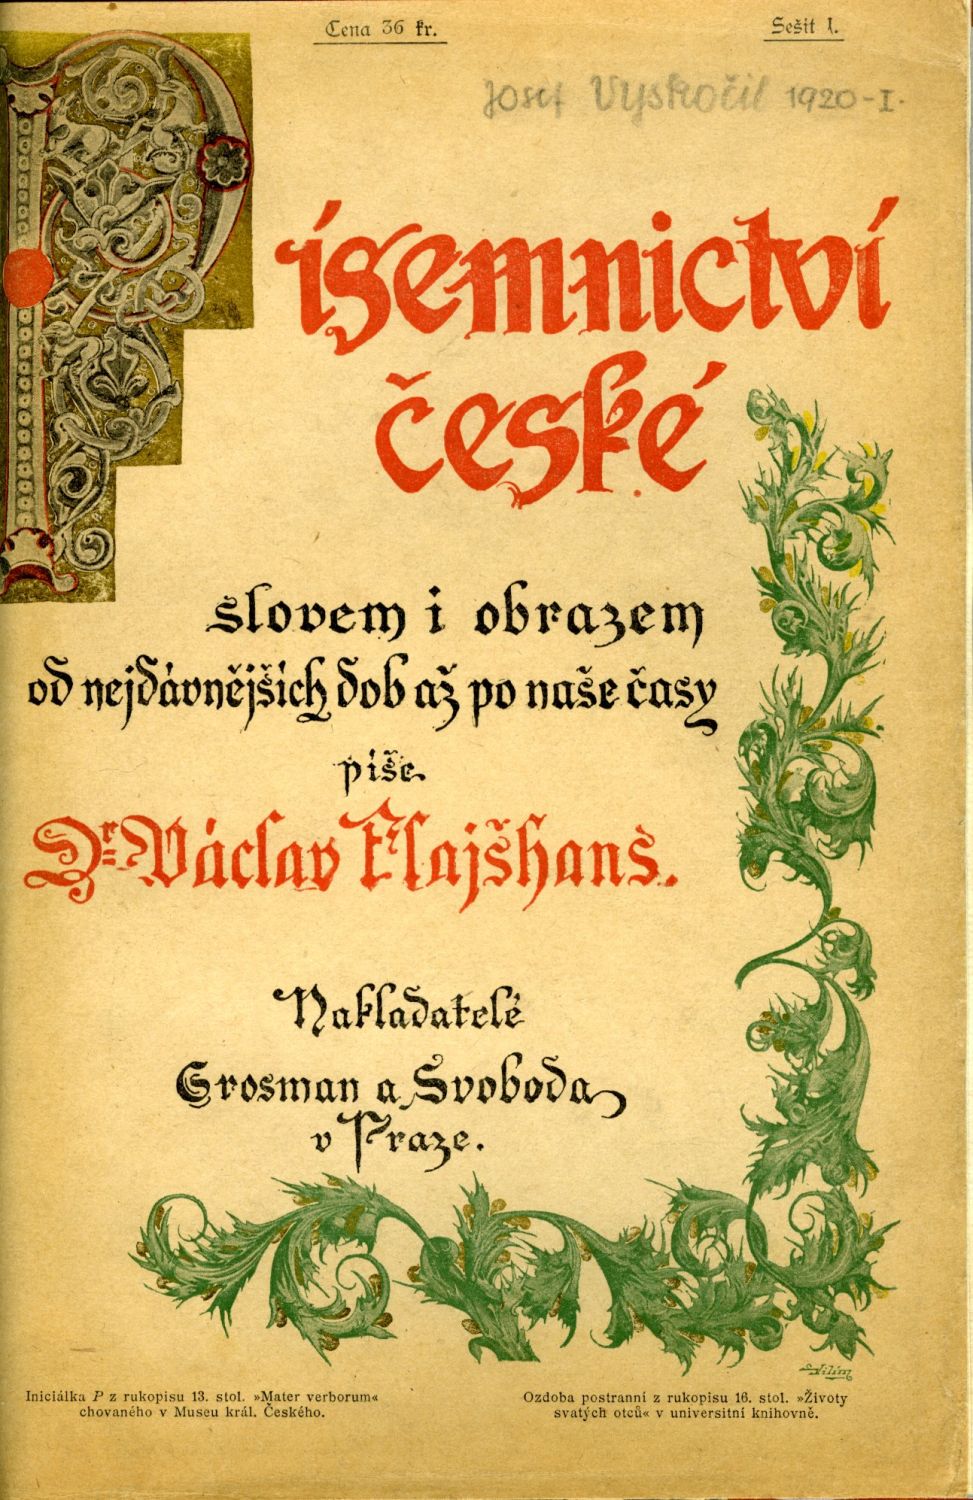 Cena 36 kr.
Sešit 1.
Josef Vyskočil 1920-I.
Písemnictví
české
slovem i obrazem
od nejdávnějších dob až po naše časy
píše
Dr. Václav Flajšhans.
Nakladatelé
Grosman a Svoboda
v Praze.
Vilím
Iniciálka P z rukopisu 13. stol. »Mater verborum«
chovaného v Museu král. Českého.
Ozdoba postranní z rukopisu 16. stol. »Životy
svatých otců« v universitní knihovně.